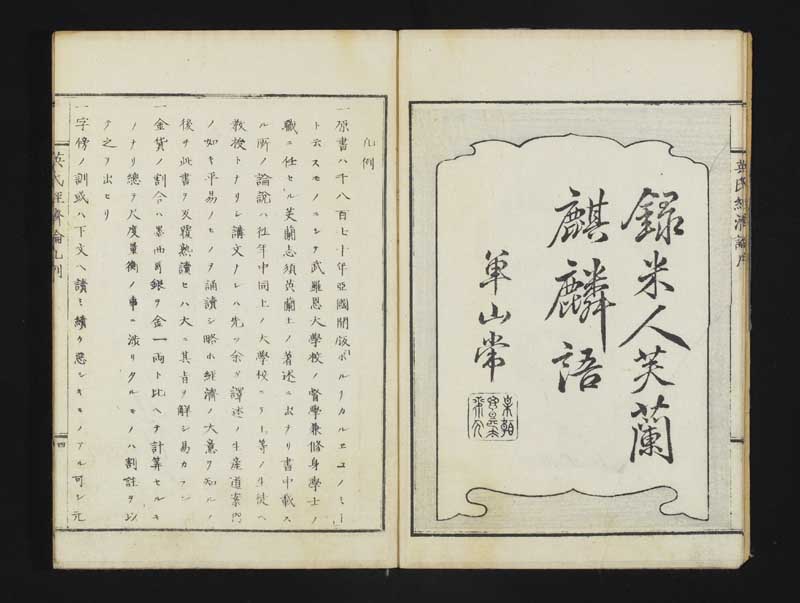 英氏經濟論序
録米人芙蘭
麒麟語
単山常
凡例
一原書ハ千八百七十年亞國開版ポルリカルエコノミー
ト云スモノニシテ武羅恩大學校ノ督學兼修身學士ノ
職ニ任セル芙蘭志須英蘭土ノ著述ニ出テリ書中載ス
ル所ノ論説ハ往年中同上ノ大學校ニヲ一等ノ生徒ヘ
教授トナリシ講文ナレハ先ツ余ガ譯述ノ生産道案内
ノ如キ平易ノモノヲ誦讀シ略ホ經濟ノ大意ヲ知ルノ
後チ此書ヲ反覆熟讀セハ大ニ其旨ヲ解シ易カラン
一金貨ノ割合ハ墨西哥銀ヲ金一兩ト比ヘテ計算セルモ
ノナリ總テ尺度量衡ノ事ニ渉リタルモノハ割註ヲ以
テ之ヲ出セリ
一字傍ノ訓或ハ下文ヘ讀ミ續ク悪シキモノアル可シ元
英氏經濟論凡例
四